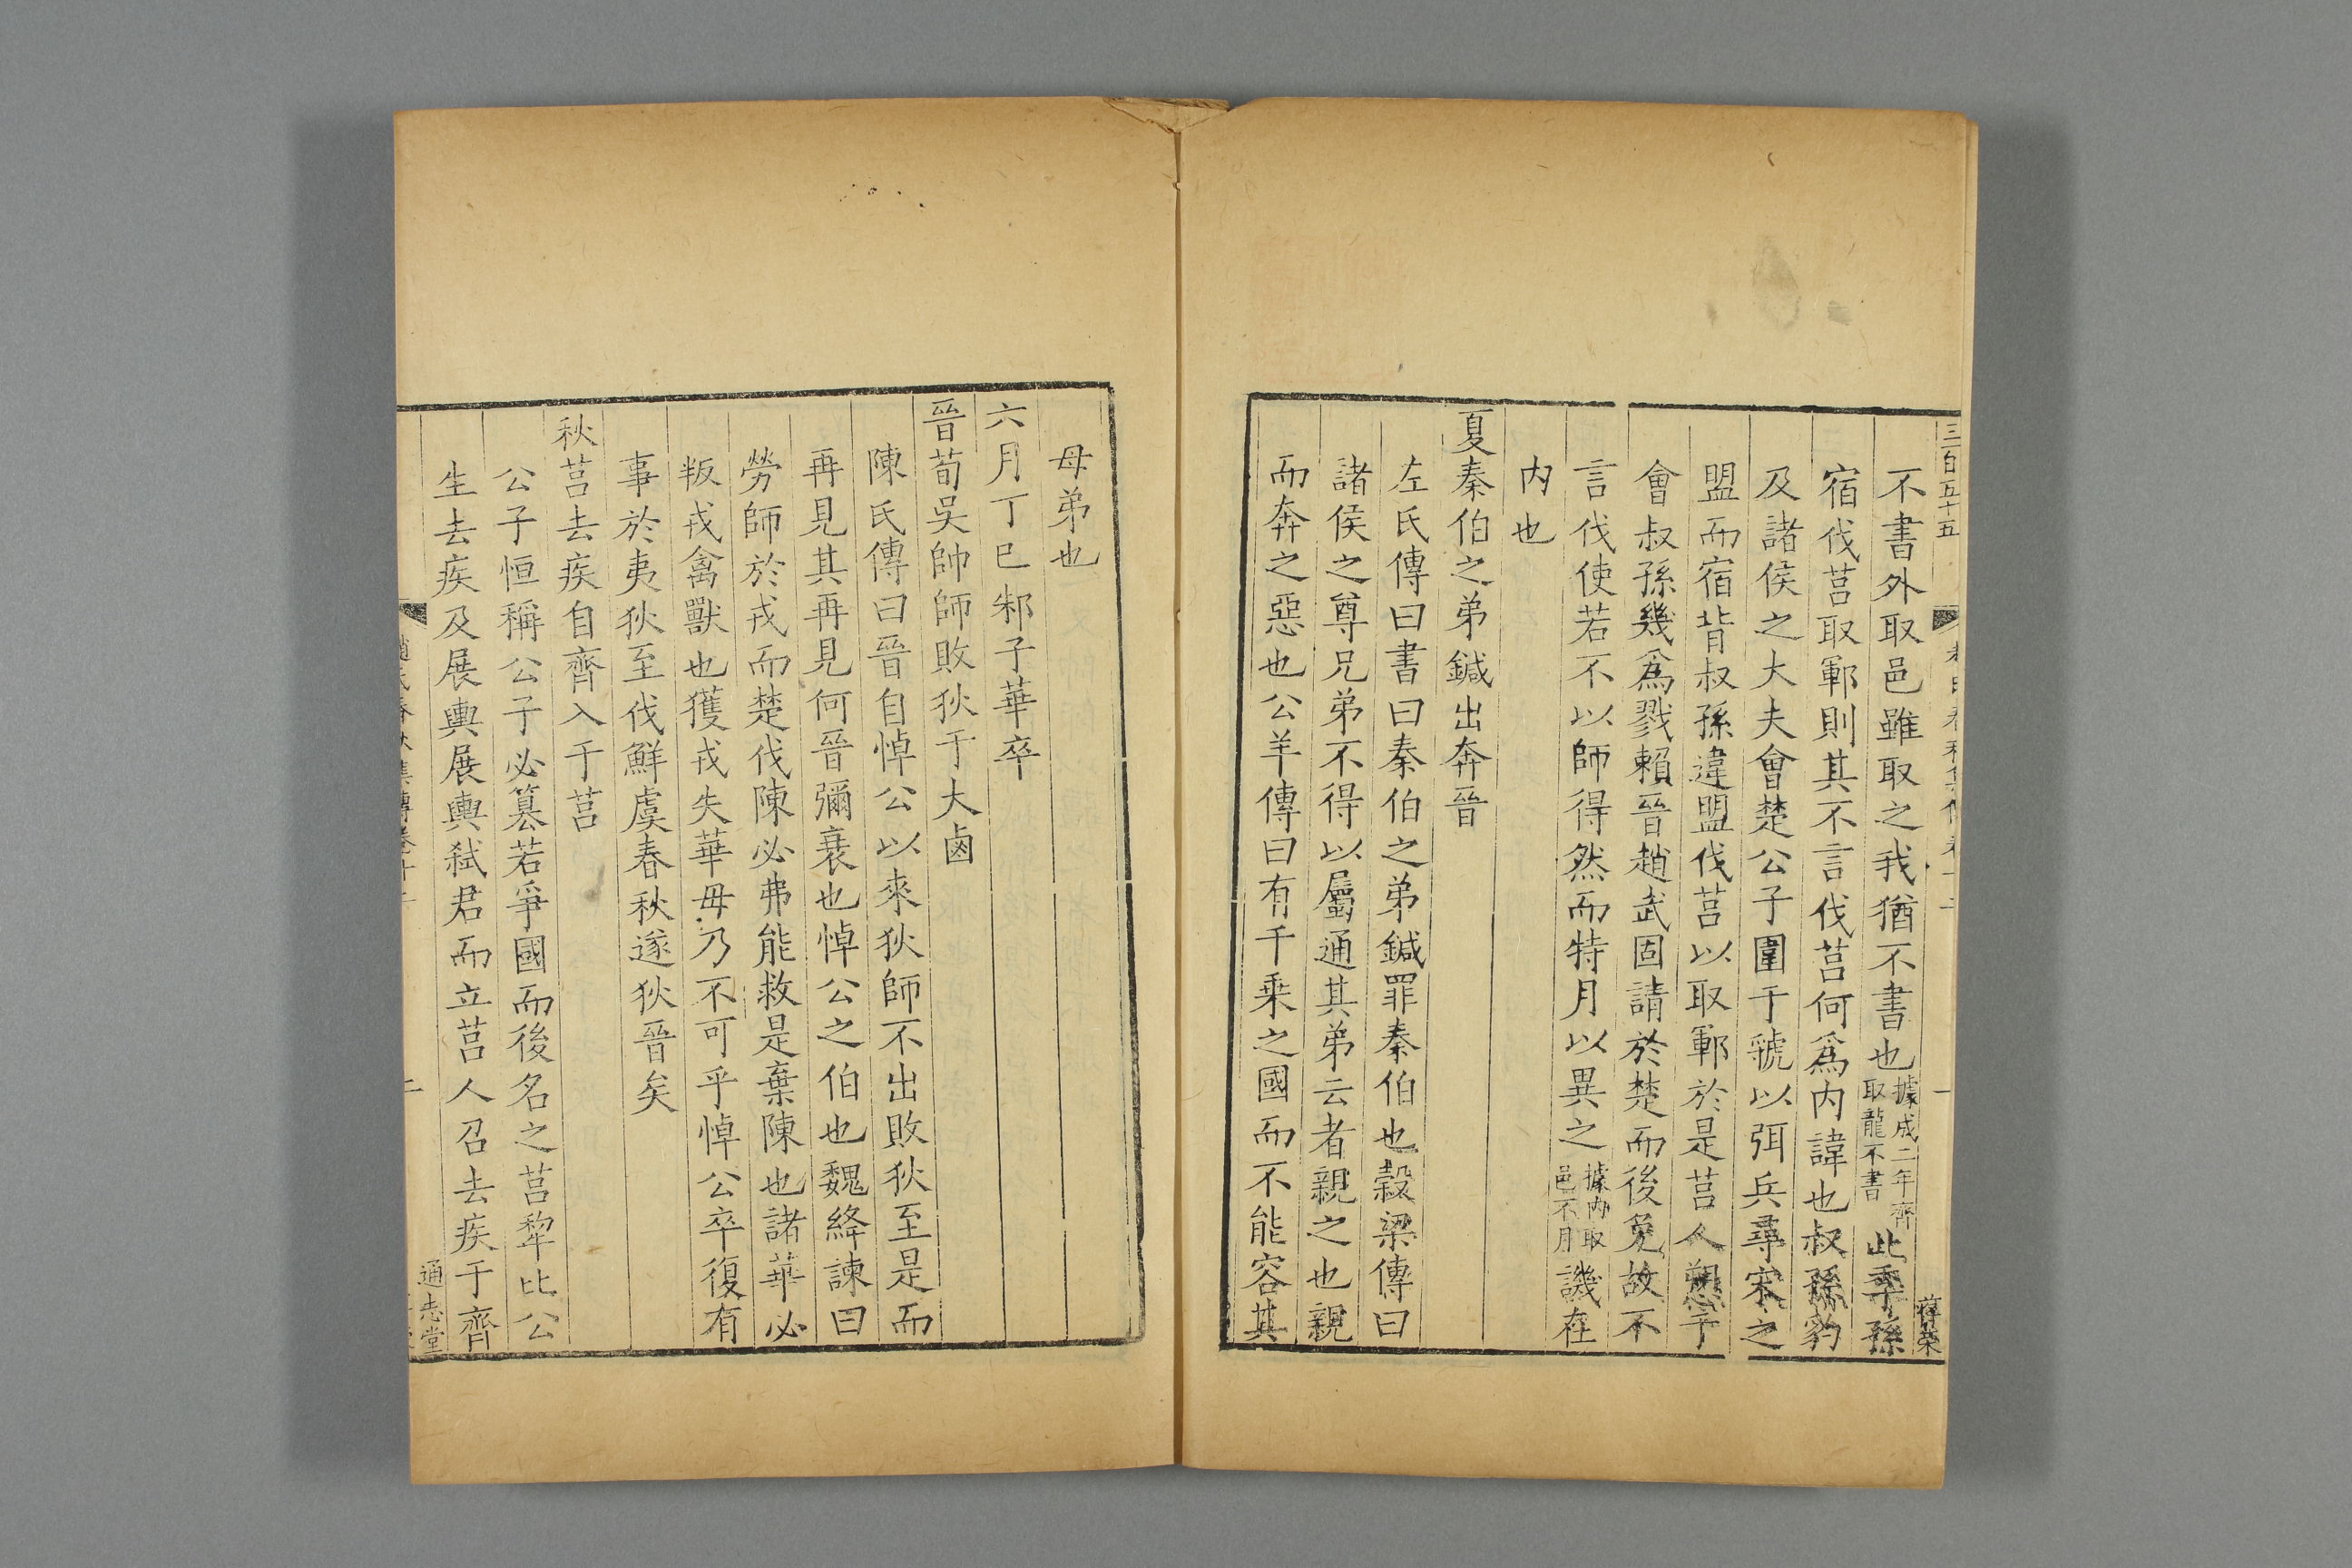 三百五十五
不書外取邑雖取之我猶不書也據成二年齊取龍不書此季孫
宿伐莒取鄆則其不言伐莒何爲内諱也叔孫豹
及諸侯之大夫會楚公子圍于虢以弭兵尋宋之
盟而宿背叔孫違盟伐莒以取鄆於是莒人愬于
會叔孫幾爲戮賴晉趙武固請於楚而後免故不
言伐使若不以師得然而特月以異之據内取邑不月譏在
内也
夏秦伯之弟鍼出奔晉
左氏傳曰書曰秦伯之弟鍼罪秦伯也穀梁傳曰
諸侯之尊兄弟不得以屬通其弟云者親之也親
而奔之惡也公羊傳曰有千乗之國而不能容其
母弟也
六月丁巳邾子華卒
晉荀吳帥師敗狄于大鹵
陳氏傳曰晉自悼公以來狄師不出敗狄至是而
再見其再見何晉彌衰也悼公之伯也魏絳諫曰
勞師於戎而楚伐陳必弗能救是棄陳也諸華必
叛戎禽獸也獲戎失華毋乃不可乎悼公卒復有
事於夷狄至伐鮮虞春秋遂狄晉矣
秋莒去疾自齊入于莒
公子恒稱公子必篡若爭國而後名之莒犂比公
生去疾及展輿展輿弑君而立莒人召去疾于齊
通志堂